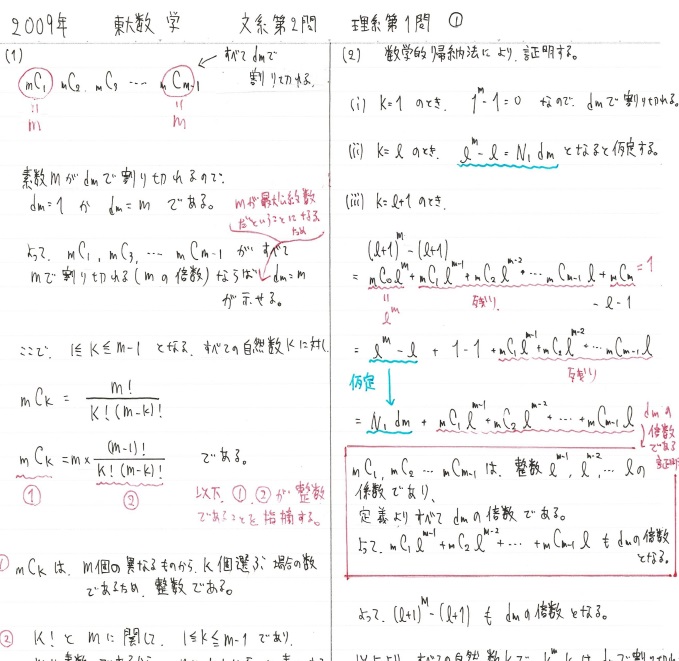 2009年 東大数学 文系第2問 理系第1問 ①
(1)
mC1 mC2、mC3 ‥‥ mCm-1
すべて dmで
割り切れる。
m
m
素数mがdmで割り切れるので、
dm=1 か dm=m である。
mが最大公約数
だということになる
ため
よって、mC1, mC3, … mCm-1 が すべて
mで割り切れる(mの倍数)ならば dm=m
が示せる。
ここで、1≦K≦m-1 となる、すべての自然数Kに対し
mCK = m! / K!(m-K)!
mCK = m× (m-1)! / K!(m-K)! である。
① ②
以下、①、②が整数
であることを指摘する。
① mCKは、m個の異なるものから、K個選ぶ場合の数
であるため、整数である。
② K!とmに関して、1≦K≦m-1であり、
(2) 数学的帰納法により、証明する。
(i) K=1のとき、 1^m-1=0 なので、dmで割り切れる。
(ii) K=lのとき、 l^m-l=N1 dm となると仮定する。
(iii) K=l+1のとき、
(l+1)^m-(l+1)
= mC0 l^m + mC1 l^m-1 + mC2 l^m-2 + … mCm-1 l + mCm =1
- l - 1
l^m
= l^m - l + 1-1 + mC1 l^m-1 + mC2 l^m-2 + … mCm-1 l
仮定
= N1 dm + mC1 l^m-1 + mC2 l^m-2 + … + mCm-1 l
dmの
倍数
である
mC1, mC2 … mCm-1 は、整数 l^m-1, l^m-2, … lの
係数であり、
定義よりすべて dmの倍数である。
よって、mC1 l^m-1 + mC2 l^m-2 + … + mCm-1 l も dmの倍数
となる。
よって、(l+1)^m-(l+1) も dmの倍数となる。